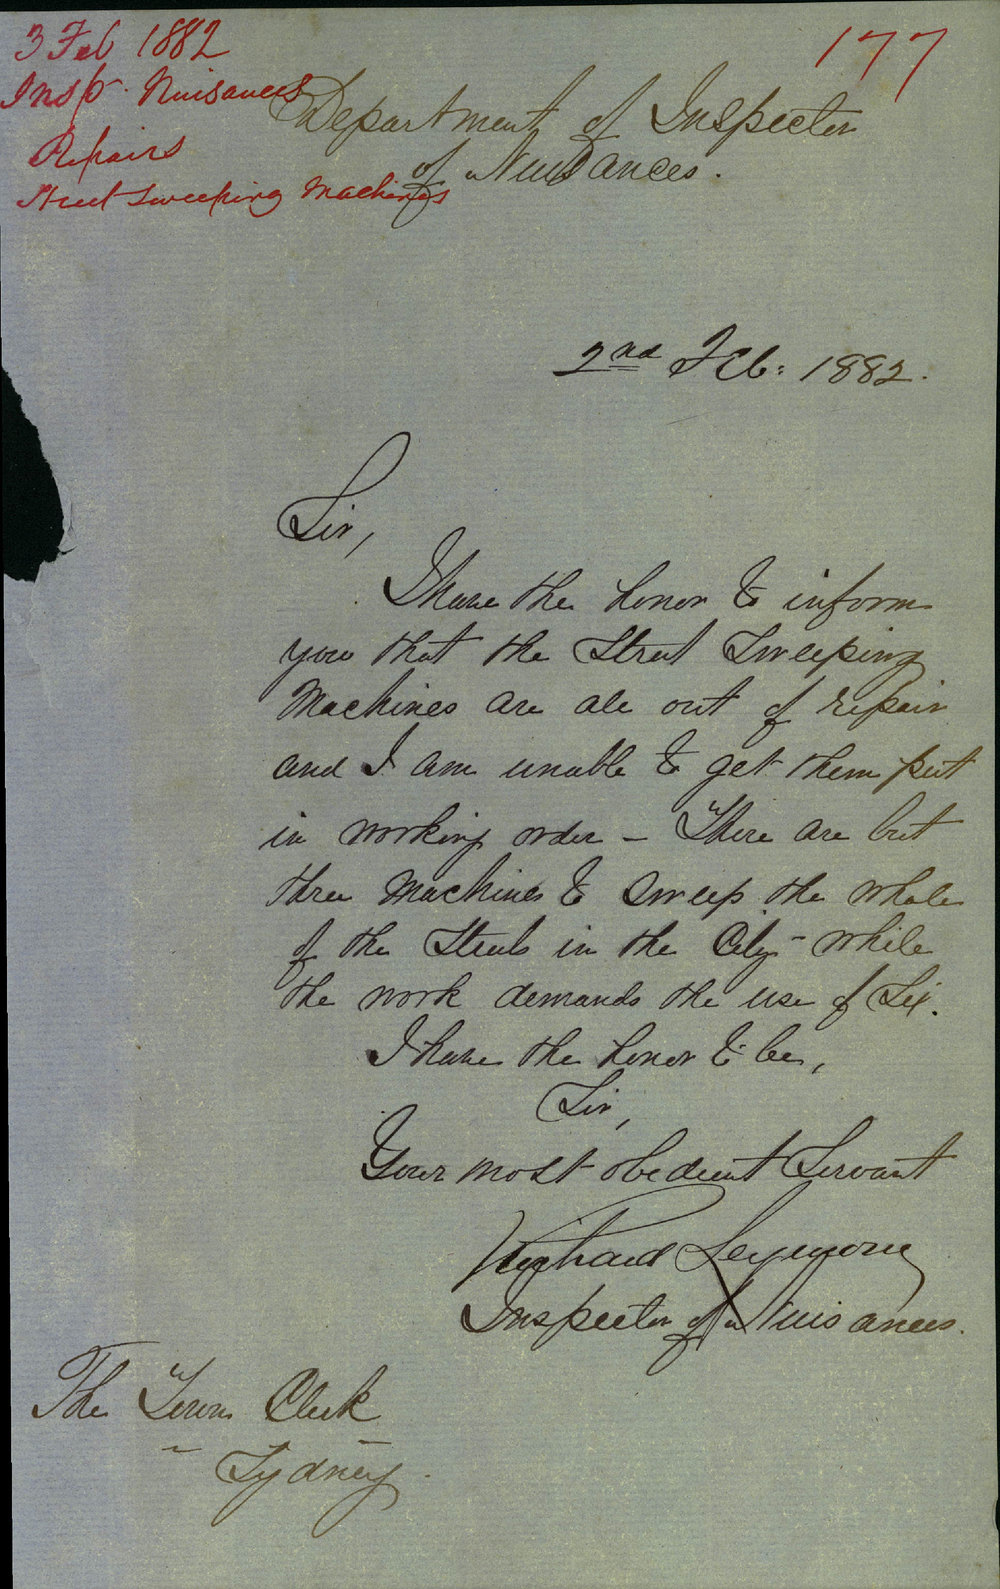 3 Feb 1882
177
Insp. Nuisances
Repairs
Street Sweeping Machines
Department of Inspector
of Nuisances.
2nd Feb: 1882.
Sir,
I have the honor to inform
you that the Street Sweeping
Machines are all out of repair
and I am unable to get them put
in working order - There are but
three Machines to sweep the whole
of the Streets in the City - while
the work demands the use of Six.
I have the honor to be,
Sir,
Your most obedient Servant
Richard Seymour
Inspector of Nuisances.
The Town Clerk
Sydney.